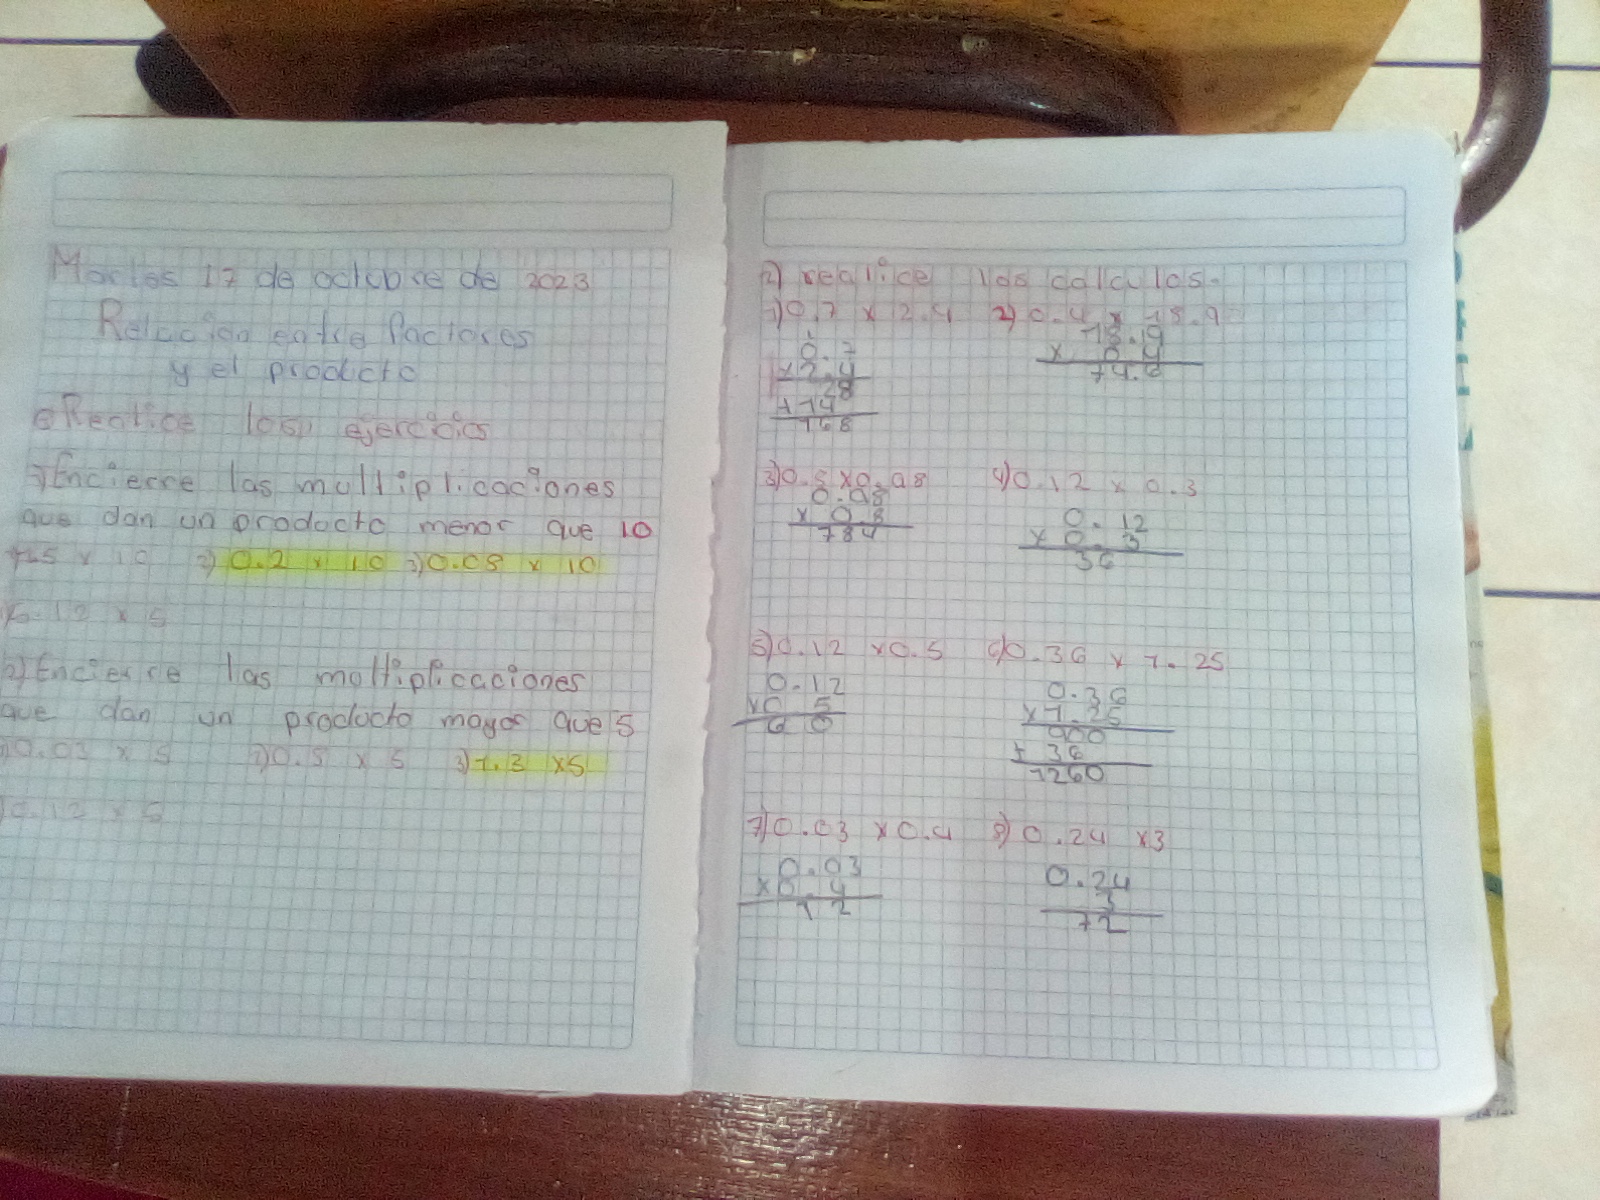 Martes 17 de octubre de 2023
Relacion entre factores
y el producto
Realice los ejercicios
1) Encierre las multiplicaciones
que dan un producto menor que 10
1.25 x 10 2) 0.2 x 10 3) 0.08 x 10
x 5
2) Encierre las multiplicaciones
que dan un producto mayor que 5
1) 0.03 x 5 2) 0.8 x 5 3) 1.3 x5
0.12 x 5
2) realice los calculos.
1) 0.7 x 2.4 2) 0.4 x 18.9
0.7
x 2.4
28
+ 14
168
18.9
x 0.4
3) 0.8 x 0.98 4) 0.12 x 0.3
0.98
x 0.8
784
0.12
x 0.3
36
5) 0.12 x 0.5 6) 0.36 x 1.25
0.12
x 0.5
60
0.36
x 1.25
900
+ 36
1260
7) 0.03 x 0.4 8) 0.24 x3
0.03
x 0.4
12
0.24
3
72